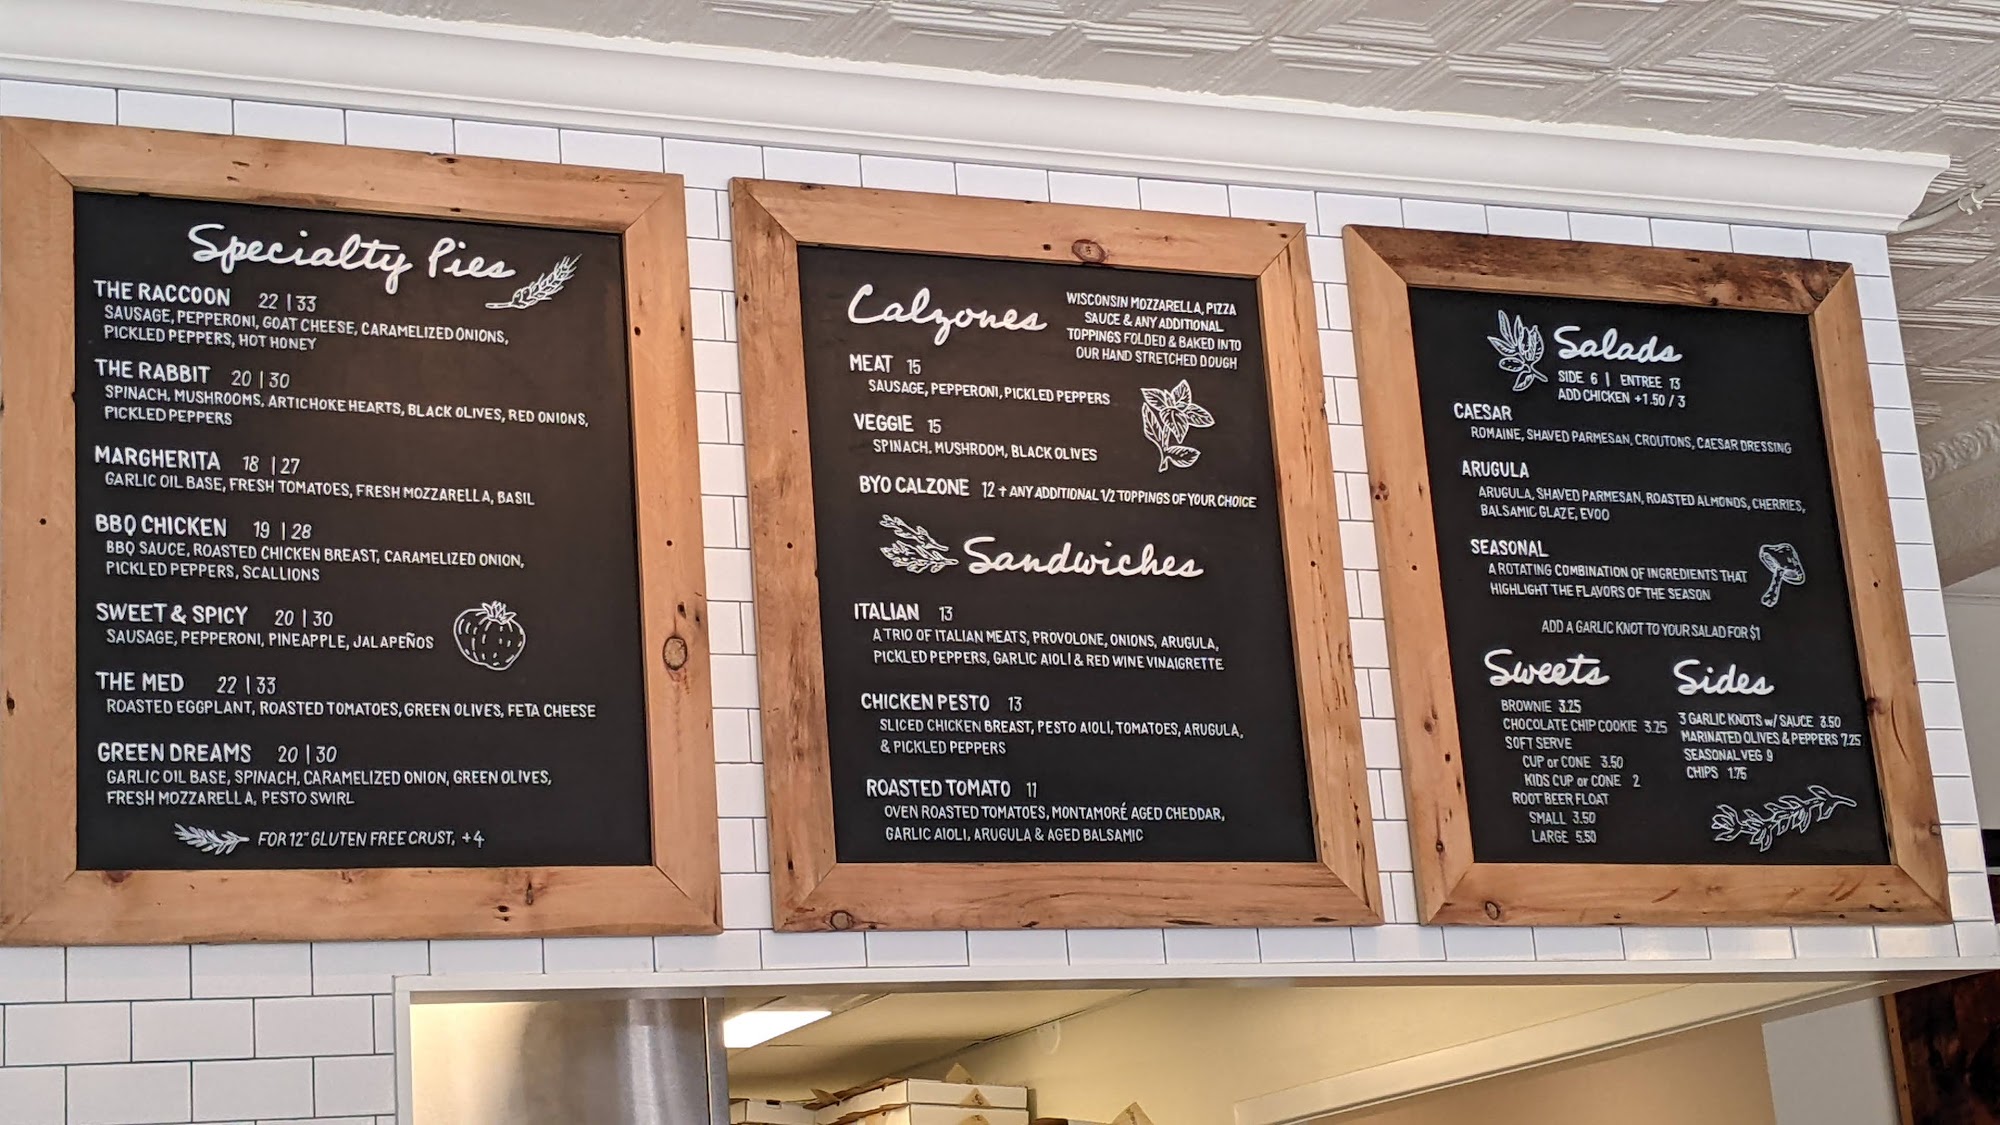 Specialty Pies
THE RACCOON 22 | 33
SAUSAGE, PEPPERONI, GOAT CHEESE, CARAMELIZED ONIONS,
PICKLED PEPPERS, HOT HONEY
THE RABBIT 20 | 30
SPINACH, MUSHROOMS, ARTICHOKE HEARTS, BLACK OLIVES, RED ONIONS,
PICKLED PEPPERS
MARGHERITA 18 | 27
GARLIC OIL BASE, FRESH TOMATOES, FRESH MOZZARELLA, BASIL
BBQ CHICKEN 19 | 28
BBQ SAUCE, ROASTED CHICKEN BREAST, CARAMELIZED ONION,
PICKLED PEPPERS, SCALLIONS
SWEET & SPICY 20 | 30
SAUSAGE, PEPPERONI, PINEAPPLE, JALAPEÑOS
THE MED 22 | 33
ROASTED EGGPLANT, ROASTED TOMATOES, GREEN OLIVES, FETA CHEESE
GREEN DREAMS 20 | 30
GARLIC OIL BASE, SPINACH, CARAMELIZED ONION, GREEN OLIVES,
FRESH MOZZARELLA, PESTO SWIRL
FOR 12" GLUTEN FREE CRUST, +4
Calzones
WISCONSIN MOZZARELLA, PIZZA
SAUCE & ANY ADDITIONAL
TOPPINGS FOLDED & BAKED INTO
OUR HAND STRETCHED DOUGH
MEAT 15
SAUSAGE, PEPPERONI, PICKLED PEPPERS
VEGGIE 15
SPINACH, MUSHROOM, BLACK OLIVES
BYO CALZONE 12 + ANY ADDITIONAL 1/2 TOPPINGS OF YOUR CHOICE
Sandwiches
ITALIAN 13
A TRIO OF ITALIAN MEATS, PROVOLONE, ONIONS, ARUGULA,
PICKLED PEPPERS, GARLIC AIOLI & RED WINE VINAIGRETTE
CHICKEN PESTO 13
SLICED CHICKEN BREAST, PESTO AIOLI, TOMATOES, ARUGULA,
& PICKLED PEPPERS
ROASTED TOMATO 11
OVEN ROASTED TOMATOES, MONTAMORÉ AGED CHEDDAR,
GARLIC AIOLI, ARUGULA & AGED BALSAMIC
Salads
SIDE 6 | ENTREE 13
ADD CHICKEN +1.50 / 3
CAESAR
ROMAINE, SHAVED PARMESAN, CROUTONS, CAESAR DRESSING
ARUGULA
ARUGULA, SHAVED PARMESAN, ROASTED ALMONDS, CHERRIES,
BALSAMIC GLAZE, EVOO
SEASONAL
A ROTATING COMBINATION OF INGREDIENTS THAT
HIGHLIGHT THE FLAVORS OF THE SEASON
ADD A GARLIC KNOT TO YOUR SALAD FOR $1
Sweets
BROWNIE 3.25
CHOCOLATE CHIP COOKIE 3.25
SOFT SERVE
CUP or CONE 3.50
KIDS CUP or CONE 2
ROOT BEER FLOAT
SMALL 3.50
LARGE 5.50
Sides
3 GARLIC KNOTS w/ SAUCE 3.50
MARINATED OLIVES & PEPPERS 7.25
SEASONAL VEG 9
CHIPS 1.75